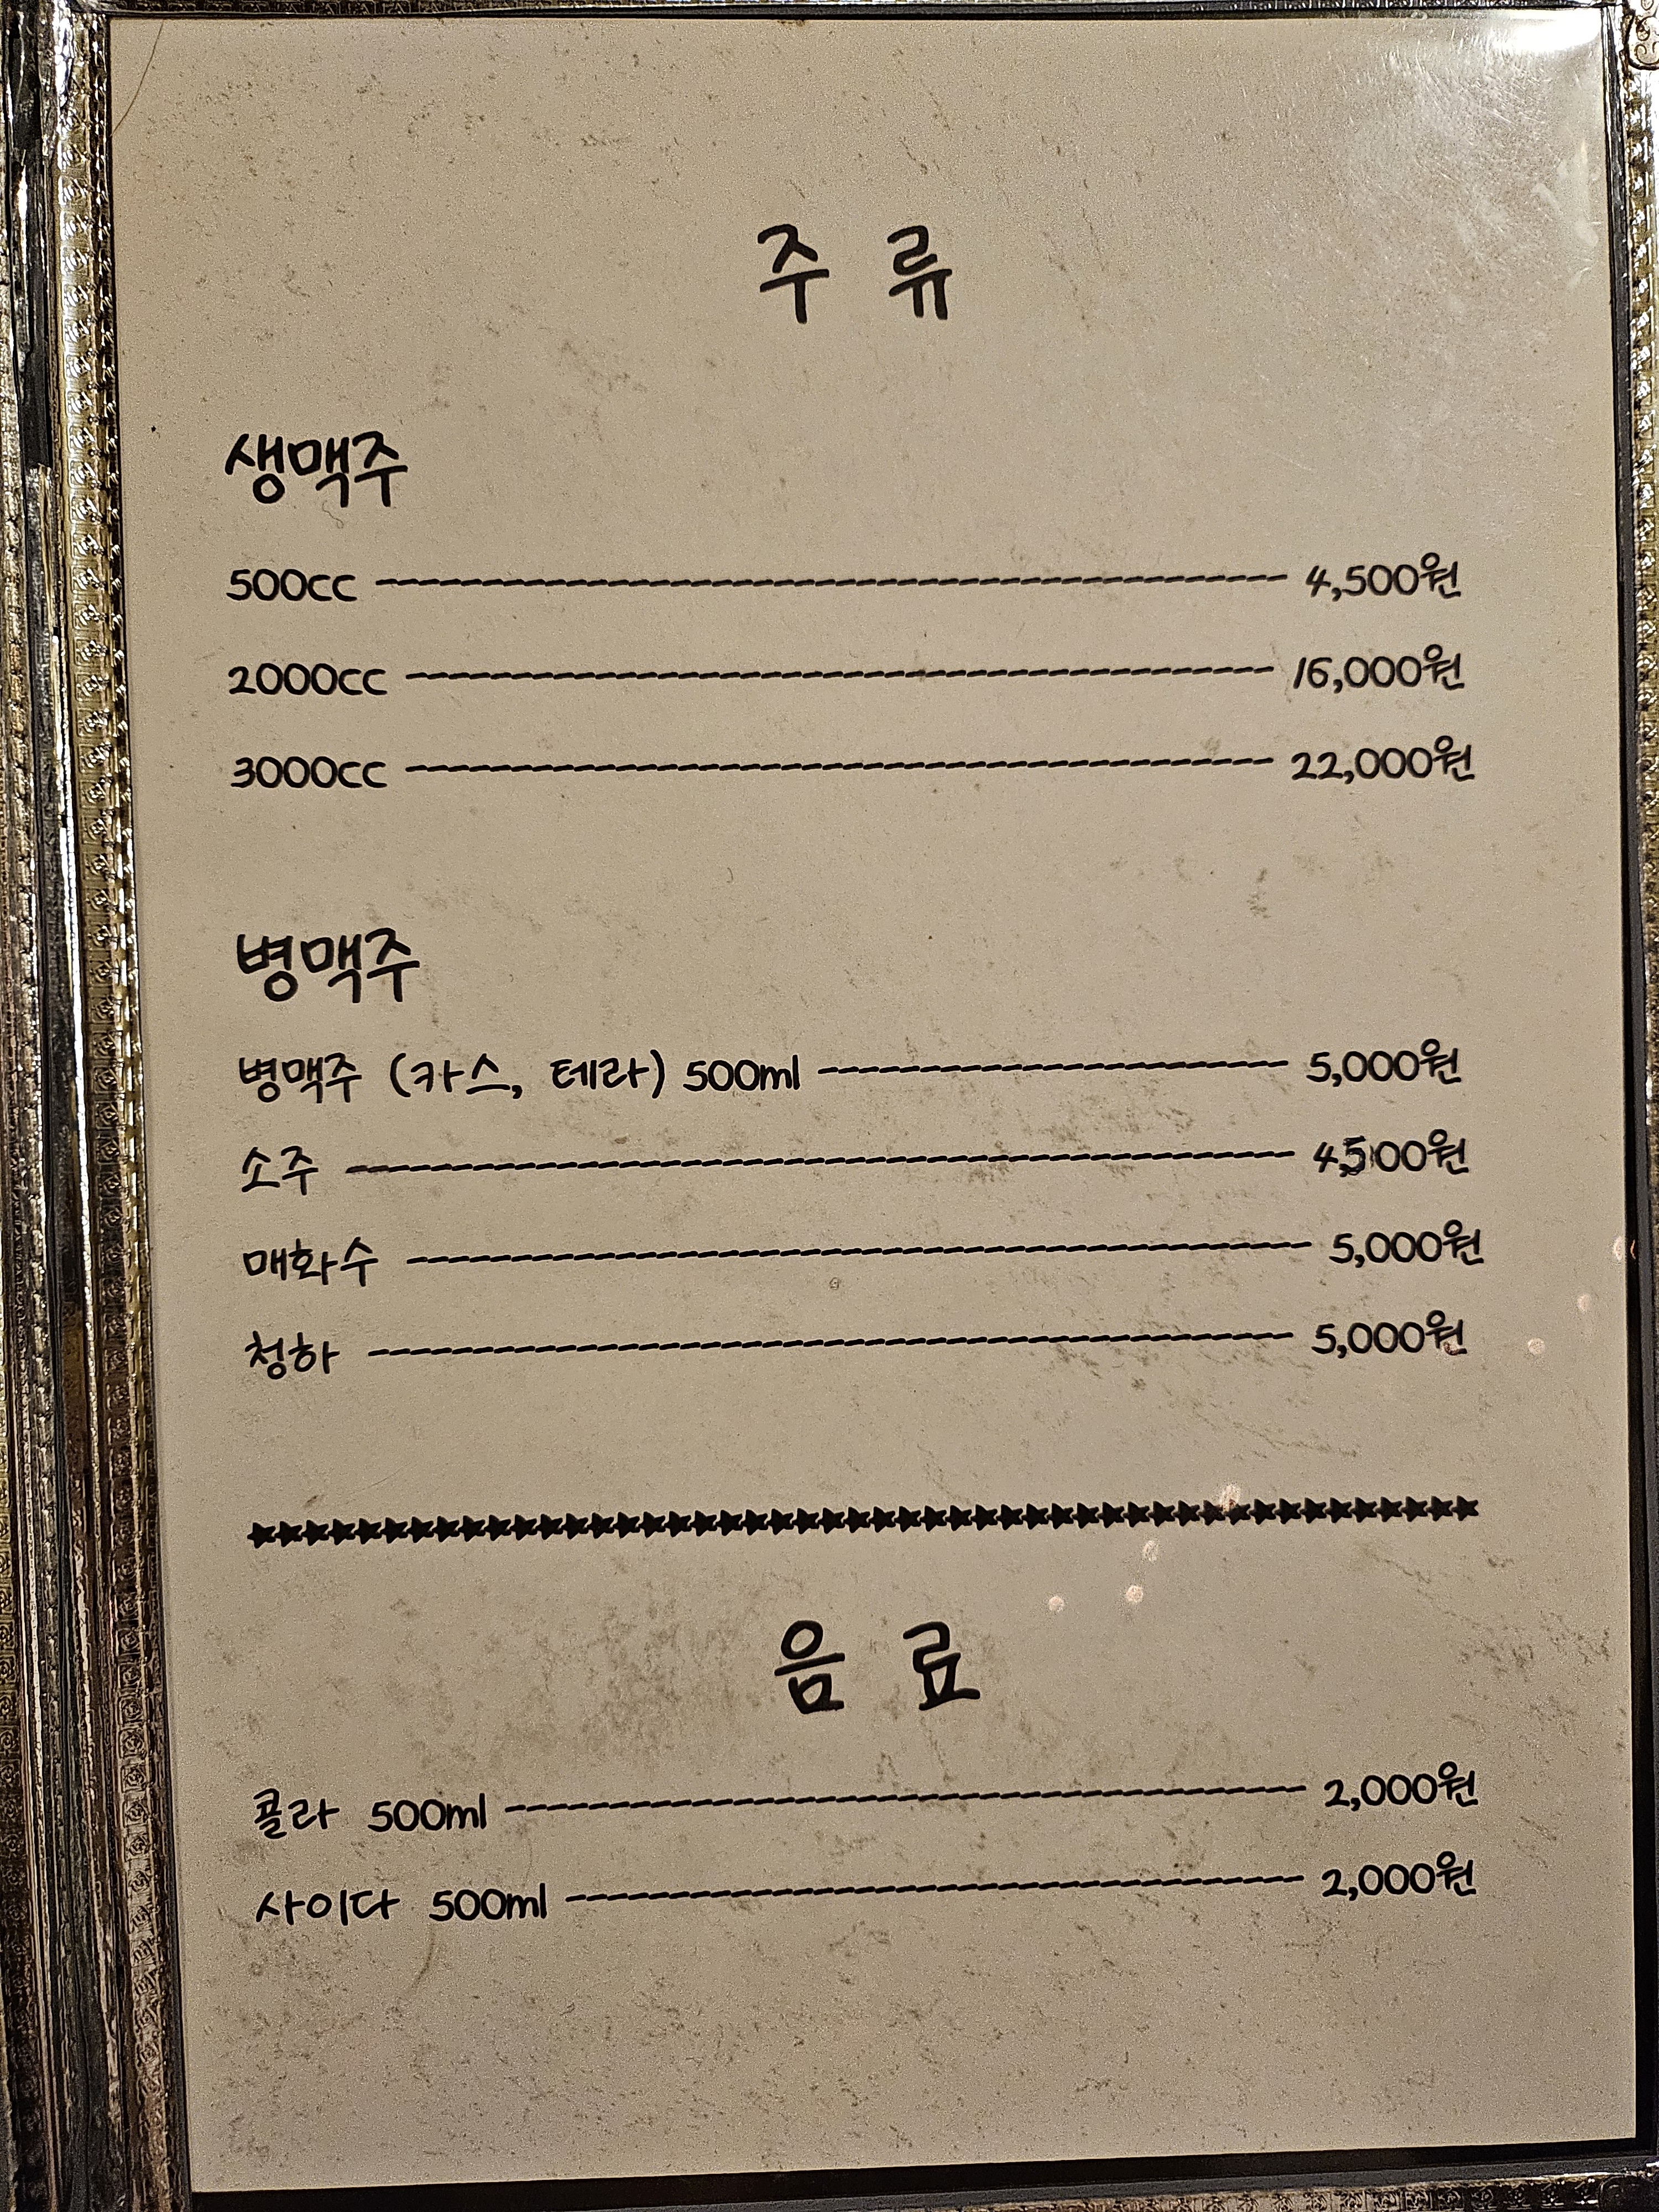 주 류
생맥주
500cc ---------- 4,500원
2000cc ---------- 16,000원
3000cc ---------- 22,000원
병맥주
병맥주 (카스, 테라) 500ml ---------- 5,000원
소주 ---------- 4,500원
매화수 ---------- 5,000원
청하 ---------- 5,000원
음 료
콜라 500ml ---------- 2,000원
사이다 500ml ---------- 2,000원